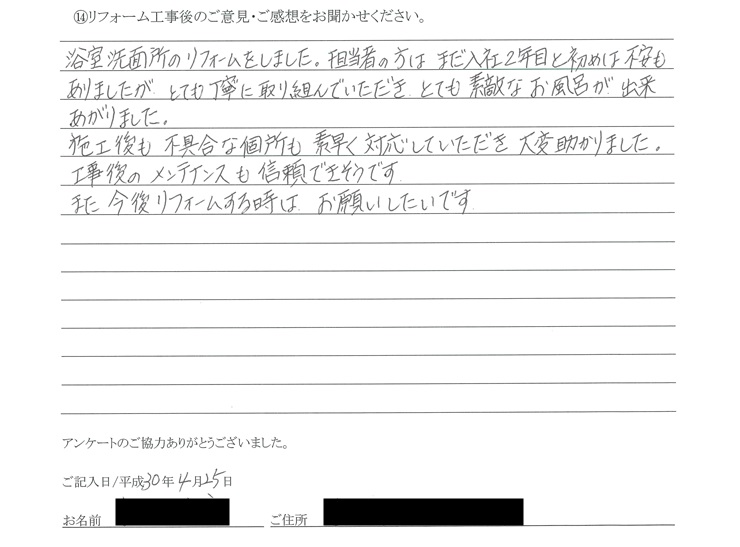 ⑭リフォーム工事後のご意見・ご感想をお聞かせください。
浴室洗面所のリフォームをしました。担当者の方は まだ入社2年目と初めは不安も
ありましたが とても丁寧に取り組んでいただき とても素敵なお風呂が出来
あがりました。
施工後も 不具合な個所も 素早く対応していただき 大変助かりました。
工事後の メンテナンスも 信頼できそうです
また 今後リフォームする時は お願いしたいです
アンケートのご協力ありがとうございました。
ご記入日/平成30年4月25日
お名前 ご住所